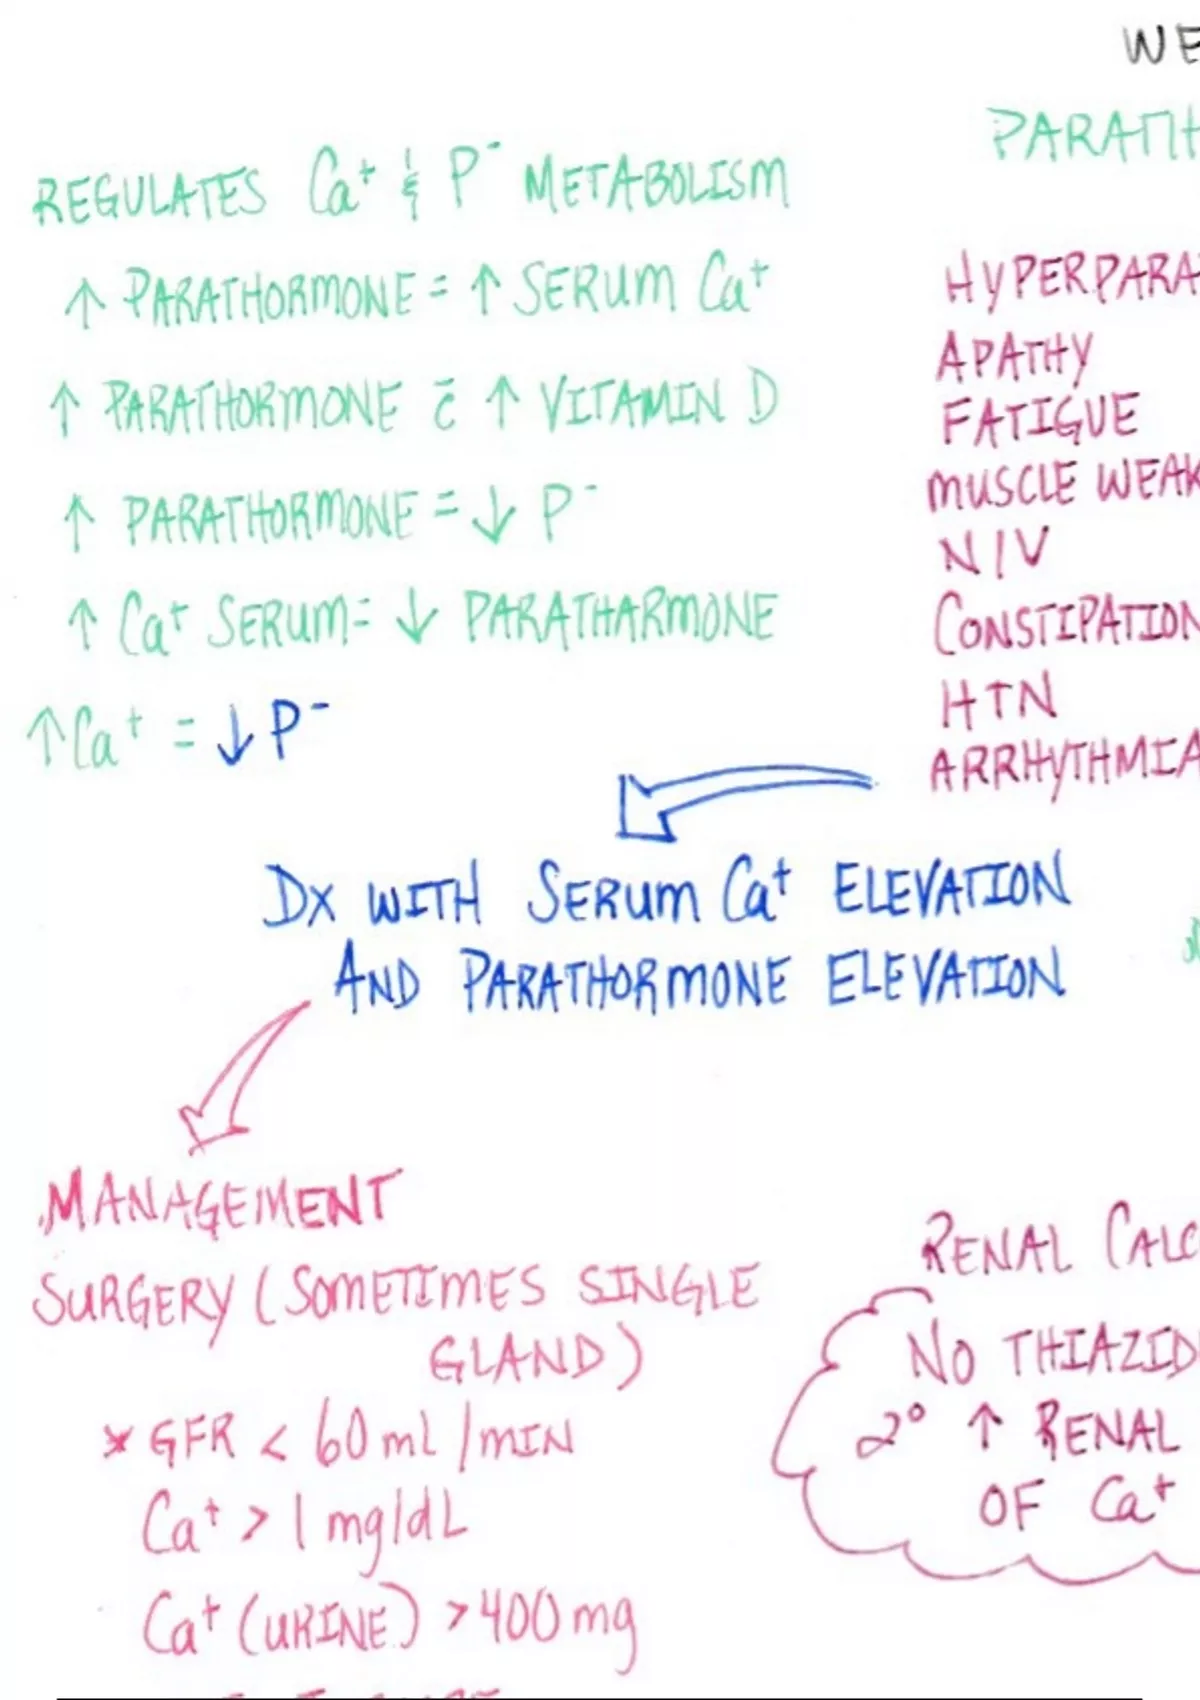 WE
PARATH
REGULATES Ca+ & P- METABOLISM
↑ PARATHORMONE = ↑ SERUM Ca+
↑ PARATHORMONE c̄ ↑ VITAMIN D
↑ PARATHORMONE = ↓ P-
↑ Ca+ SERUM = ↓ PARATHARMONE
↑ Ca+ = ↓ P-
HYPERPARA
APATHY
FATIGUE
MUSCLE WEAK
N/V
CONSTIPATION
HTN
ARRHYTHMIA
DX WITH SERUM Ca+ ELEVATION
AND PARATHORMONE ELEVATION
MANAGEMENT
SURGERY (SOMETIMES SINGLE
GLAND)
* GFR < 60 mL/MIN
Ca+ > 1 mg/dL
Ca+ (URINE) > 400 mg
RENAL CALC
NO THIAZID
2° ↑ RENAL
OF Ca+